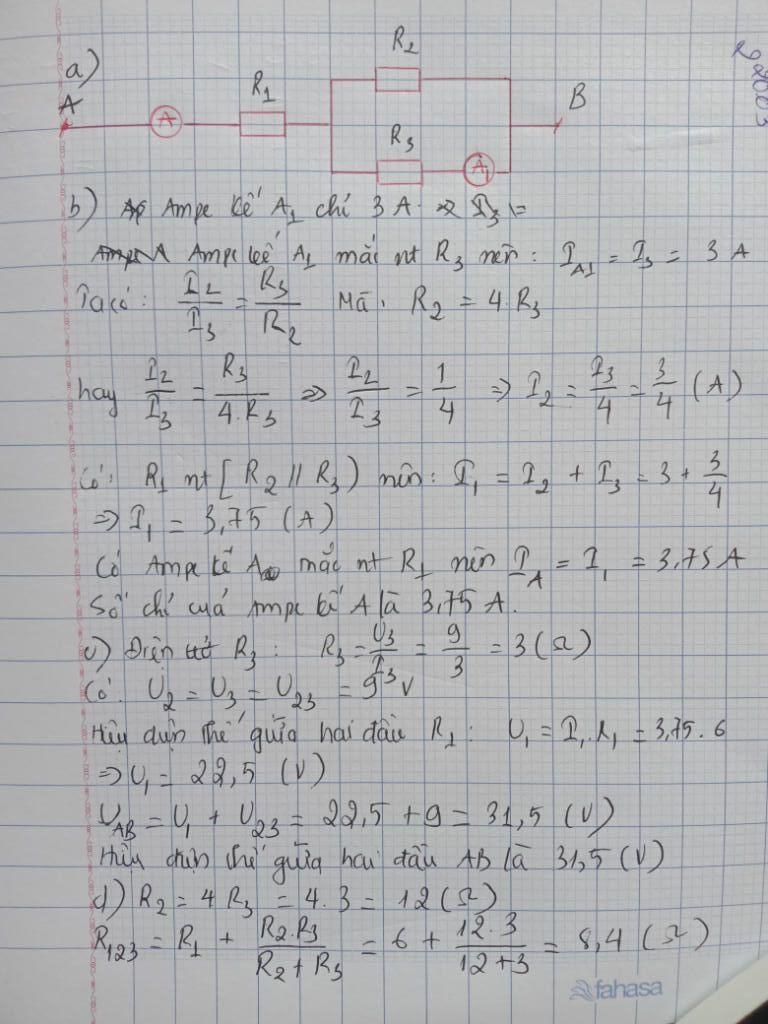 a)
R2
R1
A
A
B
R3
A1
b) Ampe kế A1 chỉ 3 A => I3 =
Ampe kế A1 mắc nt R3 nên: I_A1 = I3 = 3 A
Ta có: I2/I3 = R3/R2 Mà R2 = 4.R3
hay I2/I3 = R3/4.R3 => I2/I3 = 1/4 => I2 = I3/4 = 3/4 (A)
Có: R1 nt [R2 // R3) nên: I1 = I2 + I3 = 3 + 3/4
=> I1 = 3,75 (A)
Có Ampe kế A mắc nt R1 nên I_A = I1 = 3,75 A
Số chỉ của Ampe kế A là 3,75 A.
c) Điện trở R3: R3 = U3/I3 = 9/3 = 3 (Ω)
Có: U2 = U3 = U23 = 9 V
Hiệu điện thế giữa hai đầu R1: U1 = I1.R1 = 3,75 . 6
=> U1 = 22,5 (V)
U_AB = U1 + U23 = 22,5 + 9 = 31,5 (V)
Hiệu điện thế giữa hai đầu AB là 31,5 (V)
d) R2 = 4 R3 = 4. 3 = 12 (Ω)
R123 = R1 + R2.R3/R2 + R3 = 6 + 12. 3/12+3 = 8,4 (Ω)
fahasa